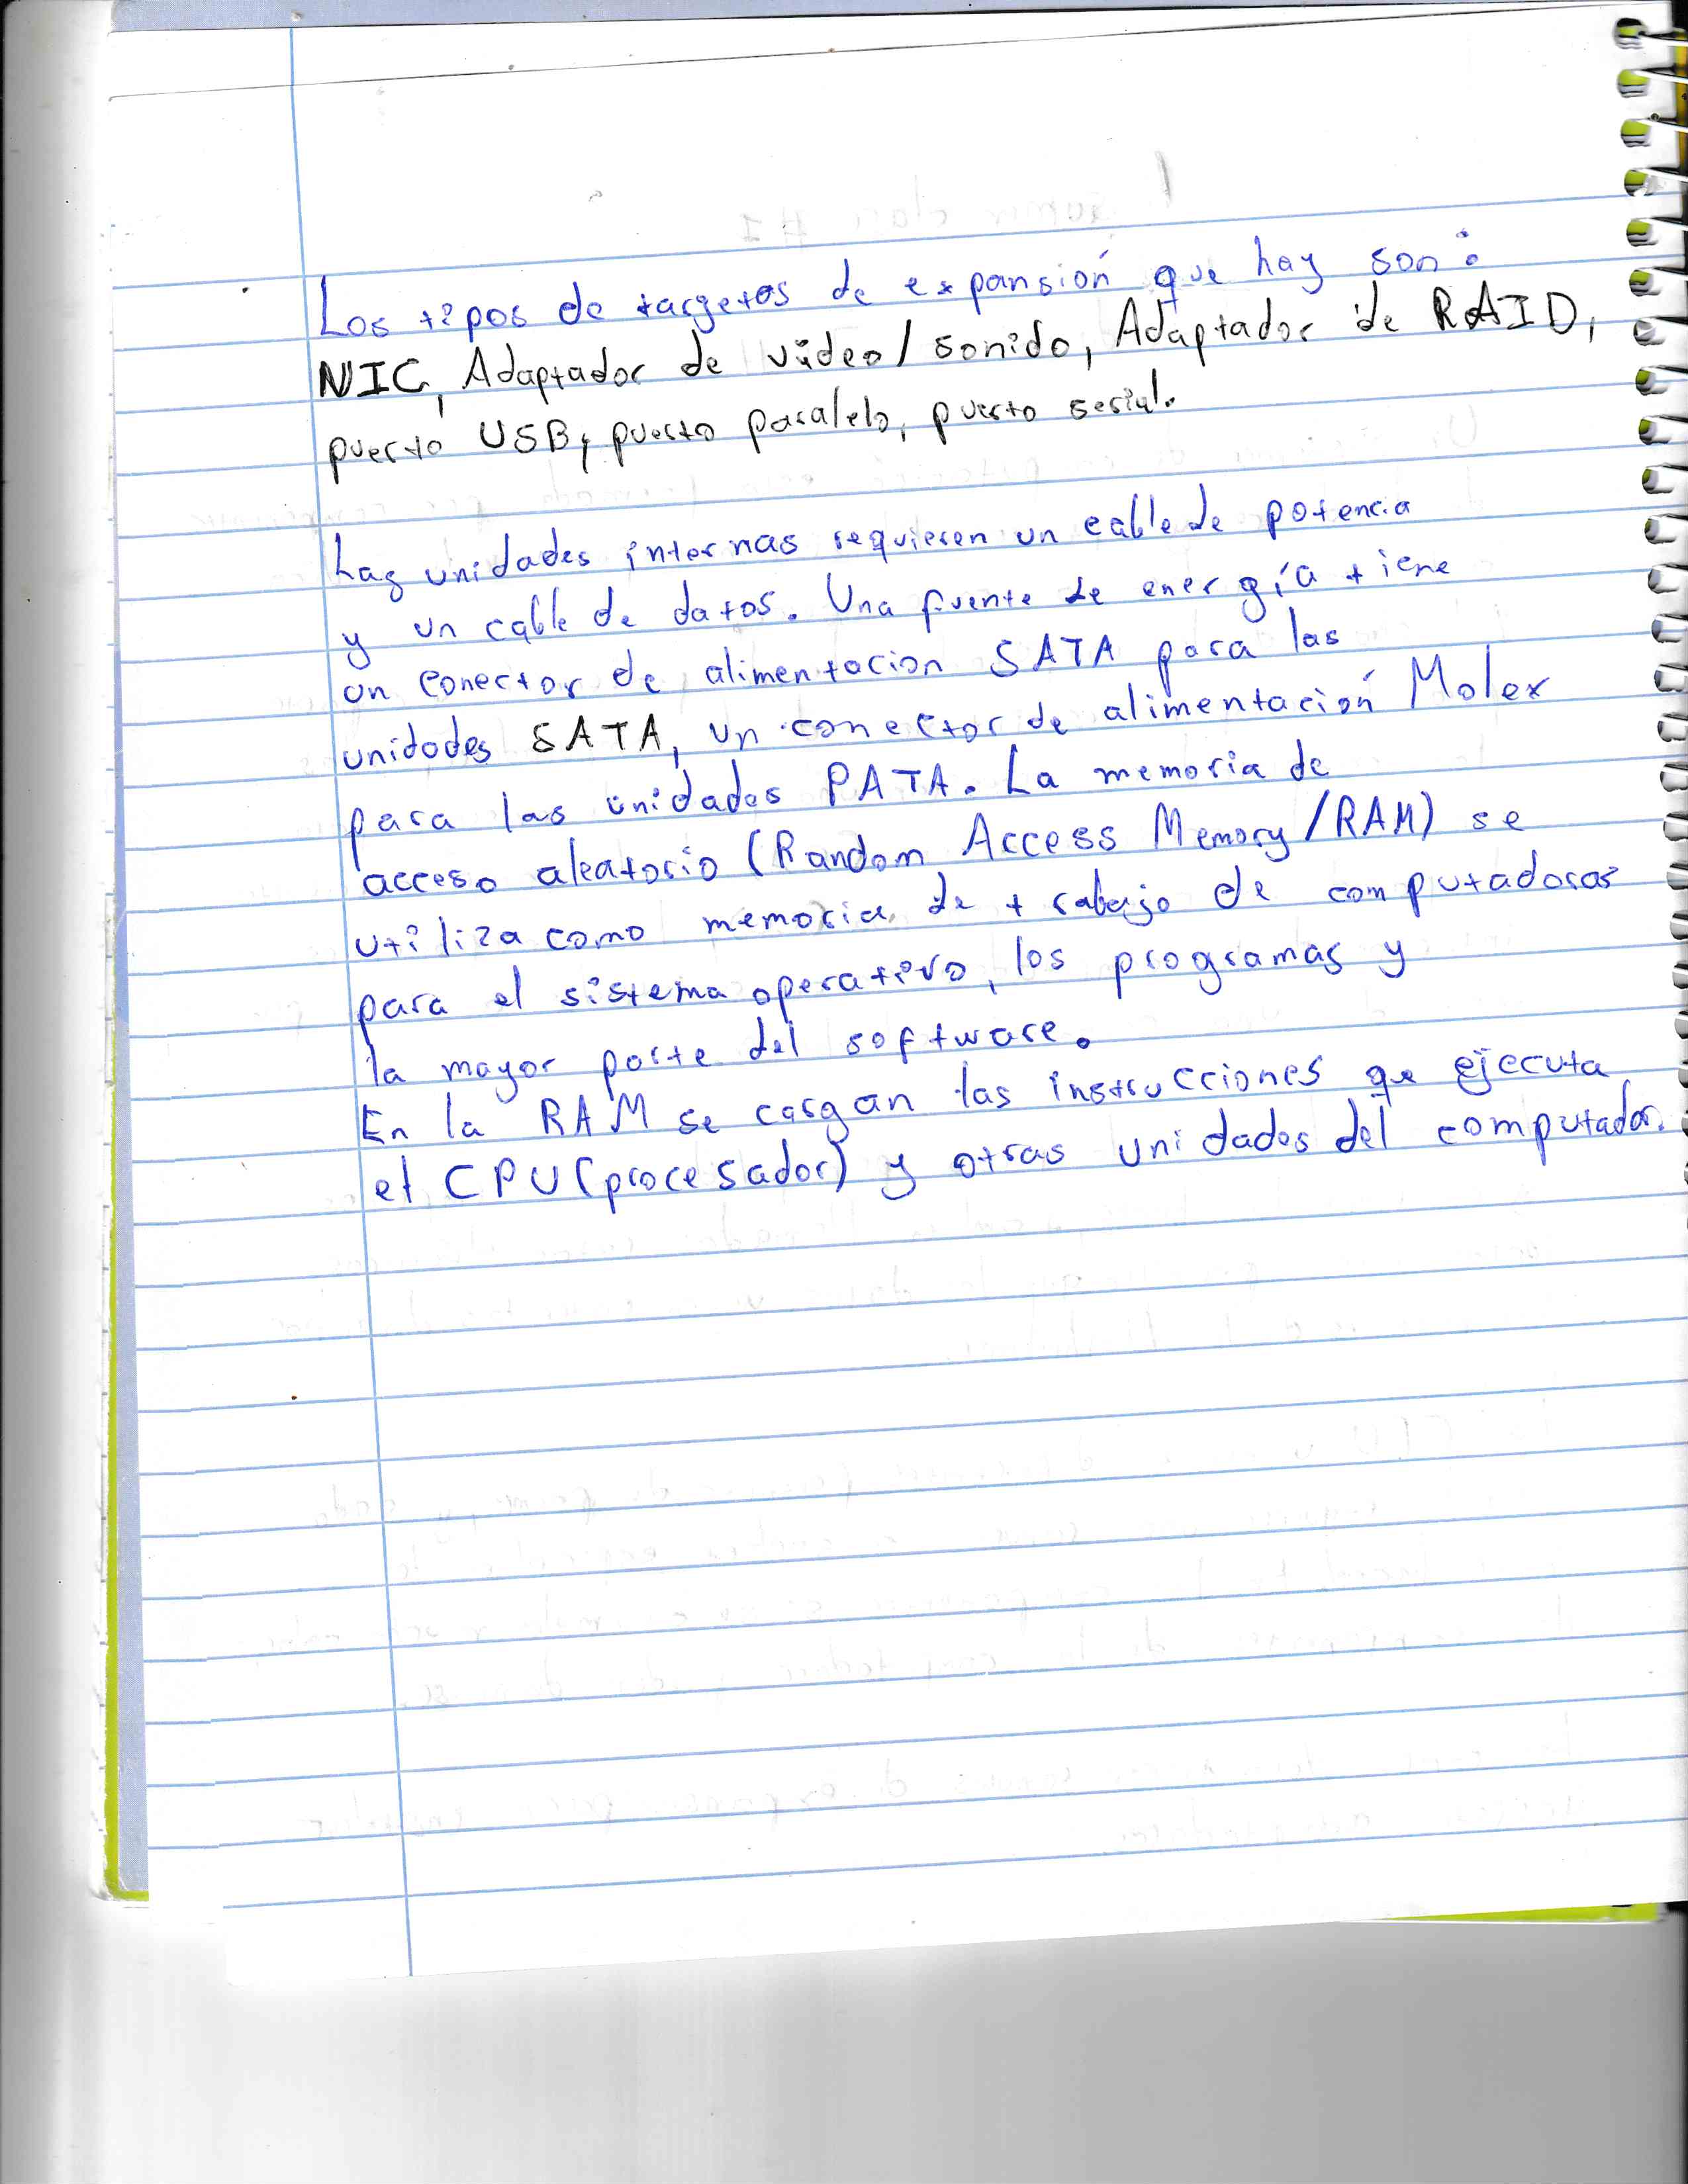 Los tipos de targetas de expansión que hay son:
NIC, Adaptador de video/sonido, Adaptador de RAID,
puerto USB, puerto paralelo, puerto serial.
Las unidades internas requieren un cable de potencia
y un cable de datos. Una fuente de energía tiene
un conector de alimentacion SATA para las
unidades SATA, un conector de alimentación Molex
para las unidades PATA. La memoria de
acceso aleatorio (Random Access Memory/RAM) se
utiliza como memoria de trabajo de computadoras
para el sistema operativo, los programas y
la mayor parte del software.
En la RAM se cargan las instrucciones que ejecuta
el CPU (procesador) y otras unidades del computador.